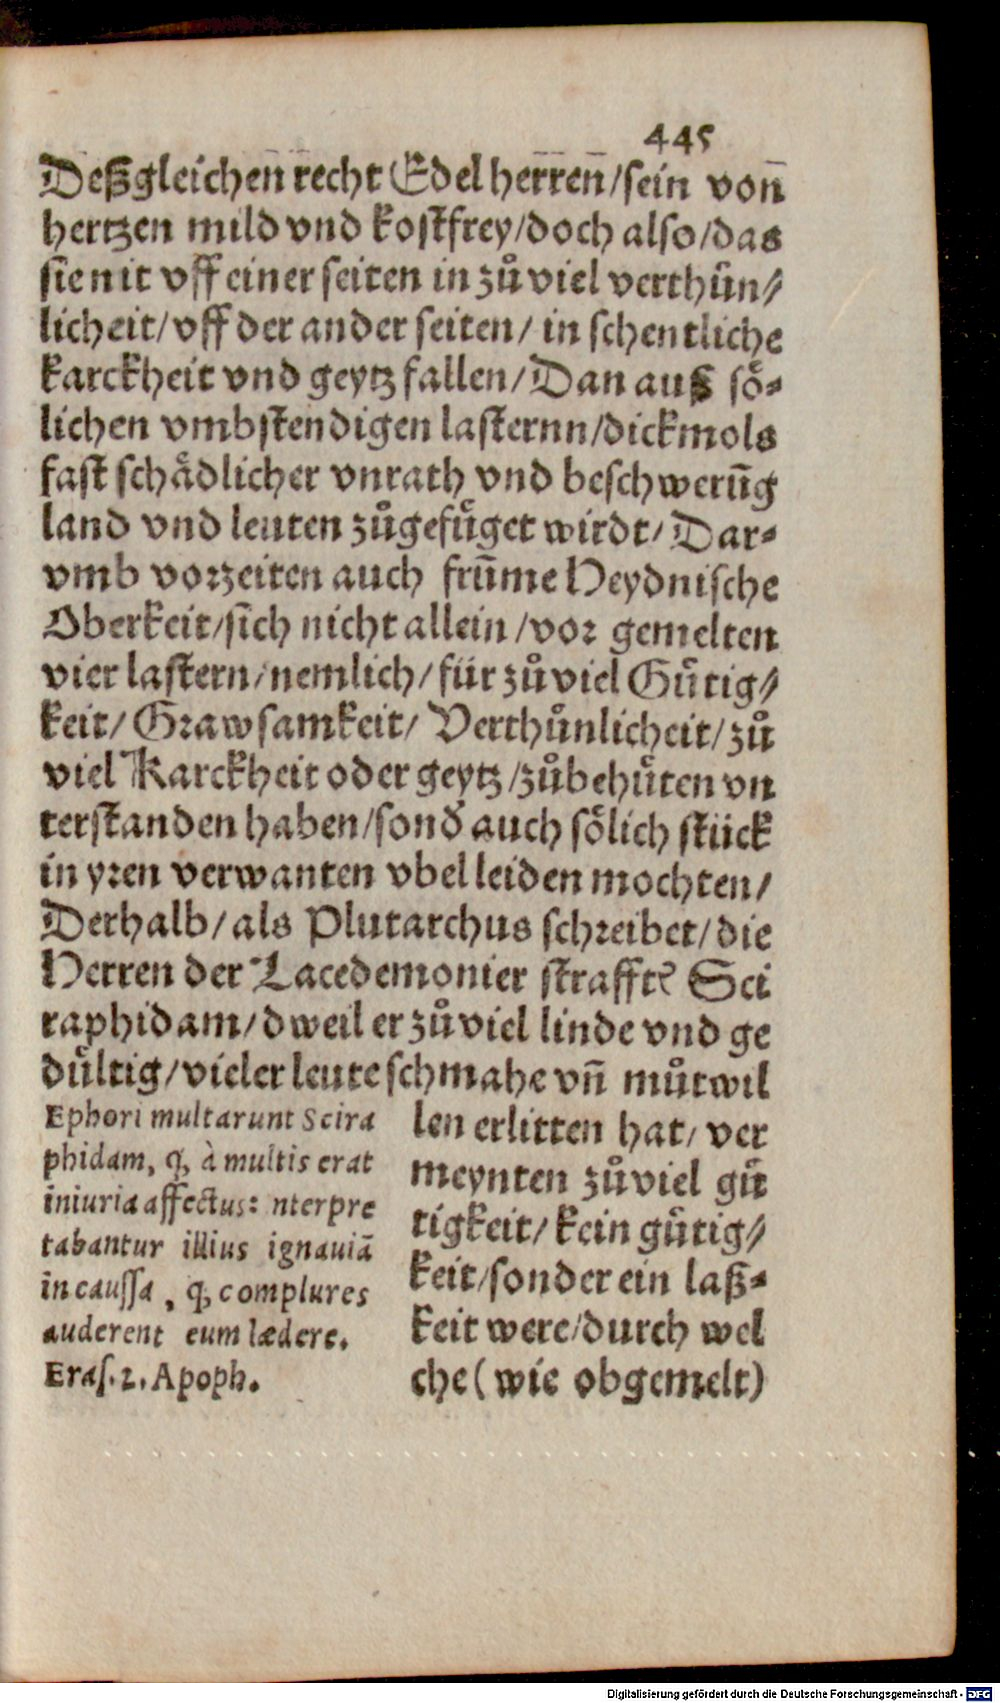 445
Deßgleichen recht Edel herren/sein von
hertzen mild vnd kostfrey/doch also/das
sie nit vff einer seiten in zů viel verthůn⸗
licheit/vff der ander seiten/in schentliche
karckheit vnd geytz fallen/Dan auß sö⸗
lichen vmbstendigen lasternn/dickmols
fast schädlicher vnrath vnd beschwerūg
land vnd leuten zůgefüget wirdt/Dar⸗
vmb vorzeiten auch frūme Heydnische
Oberkeit/sich nicht allein/vor gemelten
vier lastern/nemlich/für zů viel Gütig⸗
keit/Grawsamkeit/Verthůnlicheit/zů
viel Karckheit oder geytz/zůbehüten vn
terstanden haben/sond̕ auch sölich stück
in yren verwanten vbel leiden mochten/
Derhalb/als Plutarchus schreibet/die
Herren der Lacedemonier straffte̅ Sci
raphidam/dweil er zů viel linde vnd ge
dültig/vieler leute schmahe vn̄ můtwil
len erlitten hat/ver
meynten zů viel gü
tigkeit/kein gütig⸗
keit/sonder ein laß⸗
keit were/durch wel
che (wie obgemelt)
Ephori multarunt Scira
phidam, q̨, à multis erat
iniuria affectus: nterpre
tabantur illius ignauiā
in caussa, q̨, complures
auderent eum lædere.
Eras. 2. Apoph.
Digitalisierung gefördert durch die Deutsche Forschungsgemeinschaft - DFG